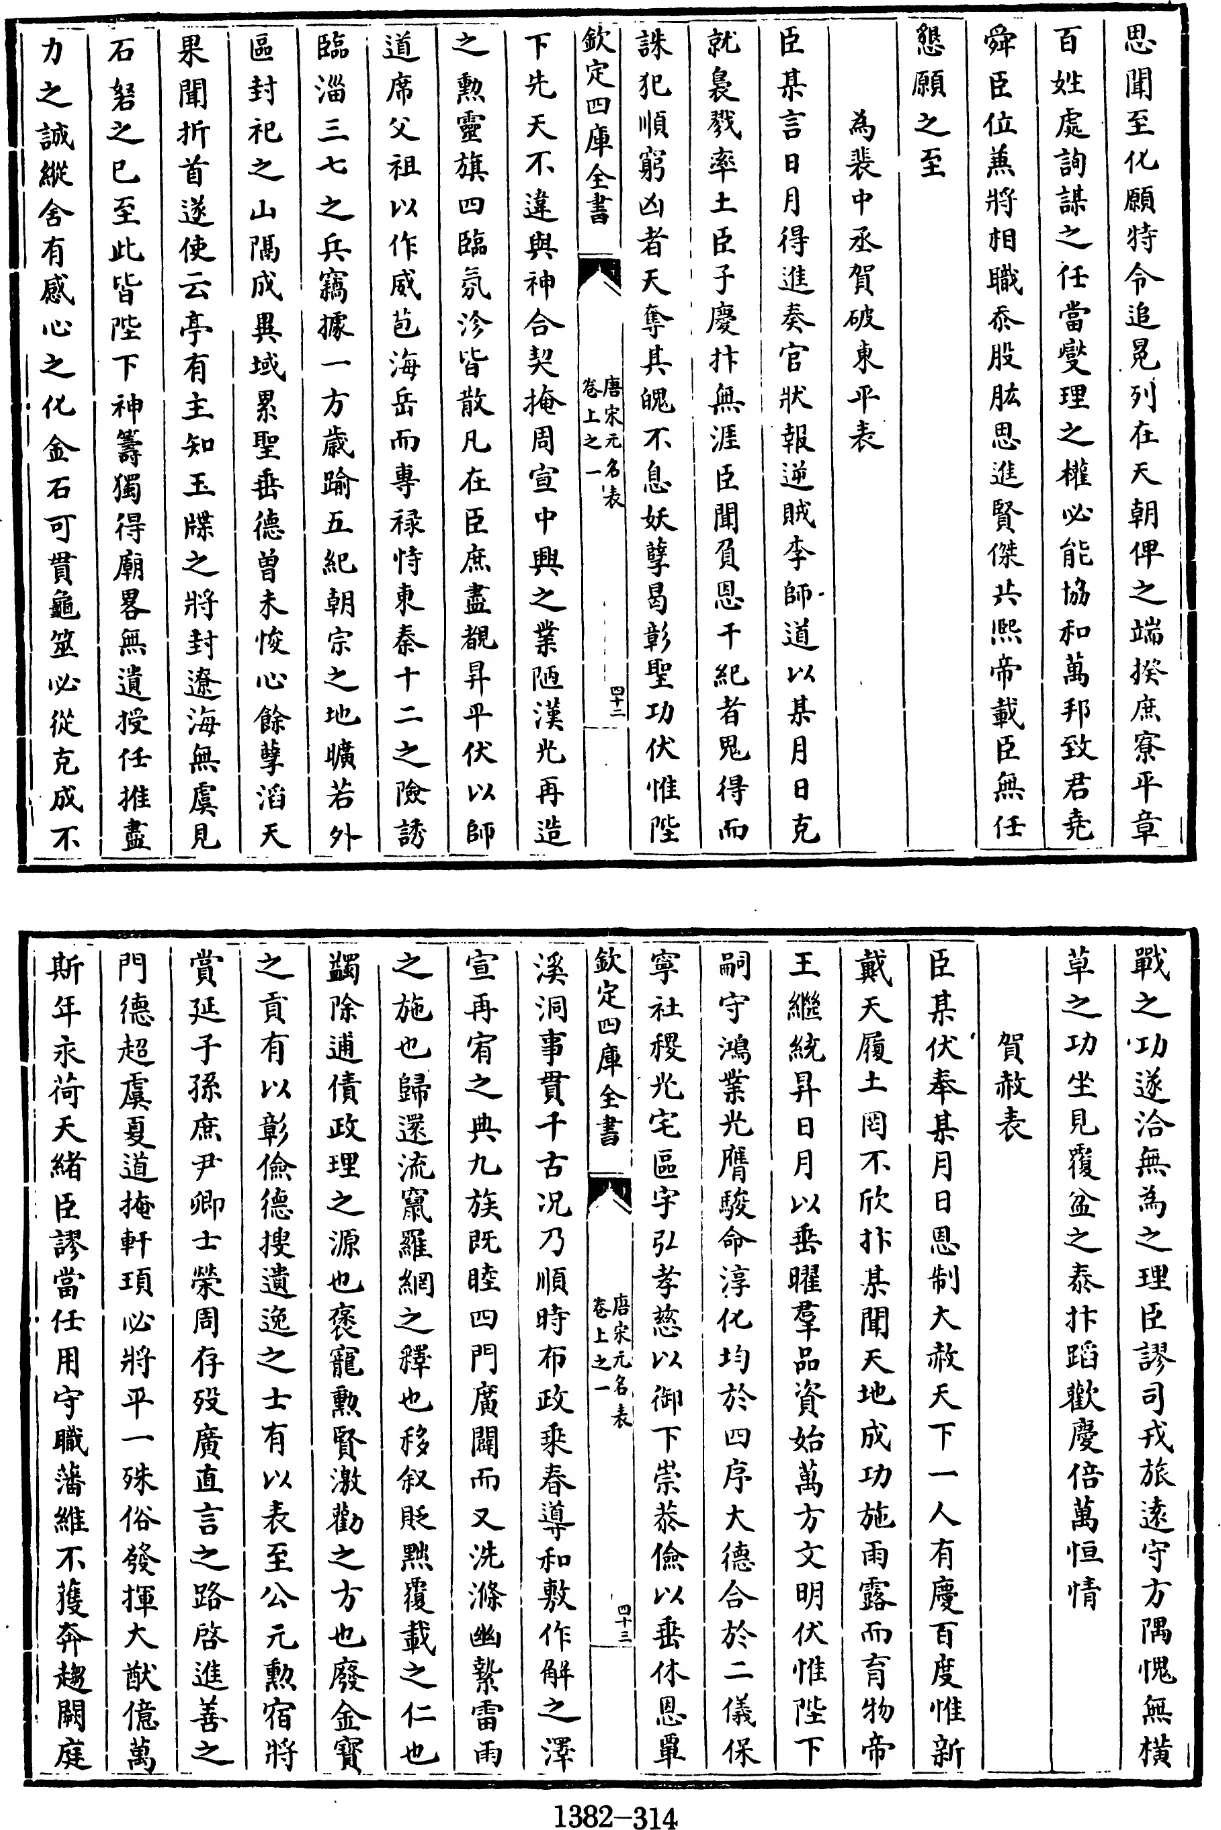 思聞至化願特令追冕列在天朝俾之端揆庶寮平章
百姓處詢謀之任當燮理之權必能協和萬邦致君堯
舜臣位兼將相職忝股肱思進賢傑共熙帝載臣無任
懇願之至
為裴中丞賀破東平表
臣某言日月得進奏官狀報逆賊李師道以某月日克
就梟戮率土臣子慶抃無涯臣聞負恩干紀者鬼得而
誅犯順窮凶者天奪其魄不息妖孽曷彰聖功伏惟陛
欽定四庫全書
唐宋元名表
卷上之一
四十二
下先天不違與神合契掩周宣中興之業陋漢光再造
之勲靈旗四臨氛沴皆散凡在臣庶盡覩昇平伏以師
道席父祖以作威苞海岳而專禄恃東秦十二之險誘
臨淄三七之兵竊據一方歲踰五紀朝宗之地曠若外
區封祀之山隔成異域累聖垂德曾未悛心餘孽滔天
果聞折首遂使云亭有主知玉牒之將封遼海無虞見
石砮之已至此皆陛下神籌獨得廟畧無遺授任推盡
力之誠縱舍有感心之化金石可貫龜筮必從克成不
戰之功遂洽無為之理臣謬司戎旅逺守方隅愧無橫
草之功坐見覆盆之泰抃蹈歡慶倍萬恒情
賀赦表
臣某伏奉某月日恩制大赦天下一人有慶百度惟新
戴天履土罔不欣抃某聞天地成功施雨露而育物帝
王繼統昇日月以垂曜羣品資始萬方文明伏惟陛下
嗣守鴻業光膺駿命淳化均於四序大德合於二儀保
寧社稷光宅區宇弘孝慈以御下崇恭儉以垂休恩覃
欽定四庫全書
唐宋元名表
卷上之一
四十三
溪洞事貫千古况乃順時布政乘春導和敷作解之澤
宣再宥之典九族既睦四門廣闢而又洗滌幽縶雷雨
之施也歸還流竄羅網之釋也移叙貶黜覆載之仁也
蠲除逋債政理之源也褒寵勲賢激勸之方也廢金寶
之貢有以彰儉德搜遺逸之士有以表至公元勲宿將
賞延子孫庶尹卿士榮周存歿廣直言之路啓進善之
門德超虞夏道掩軒頊必將平一殊俗發揮大猷億萬
斯年永荷天緒臣謬當任用守職藩維不獲奔趨闕庭
1382-314